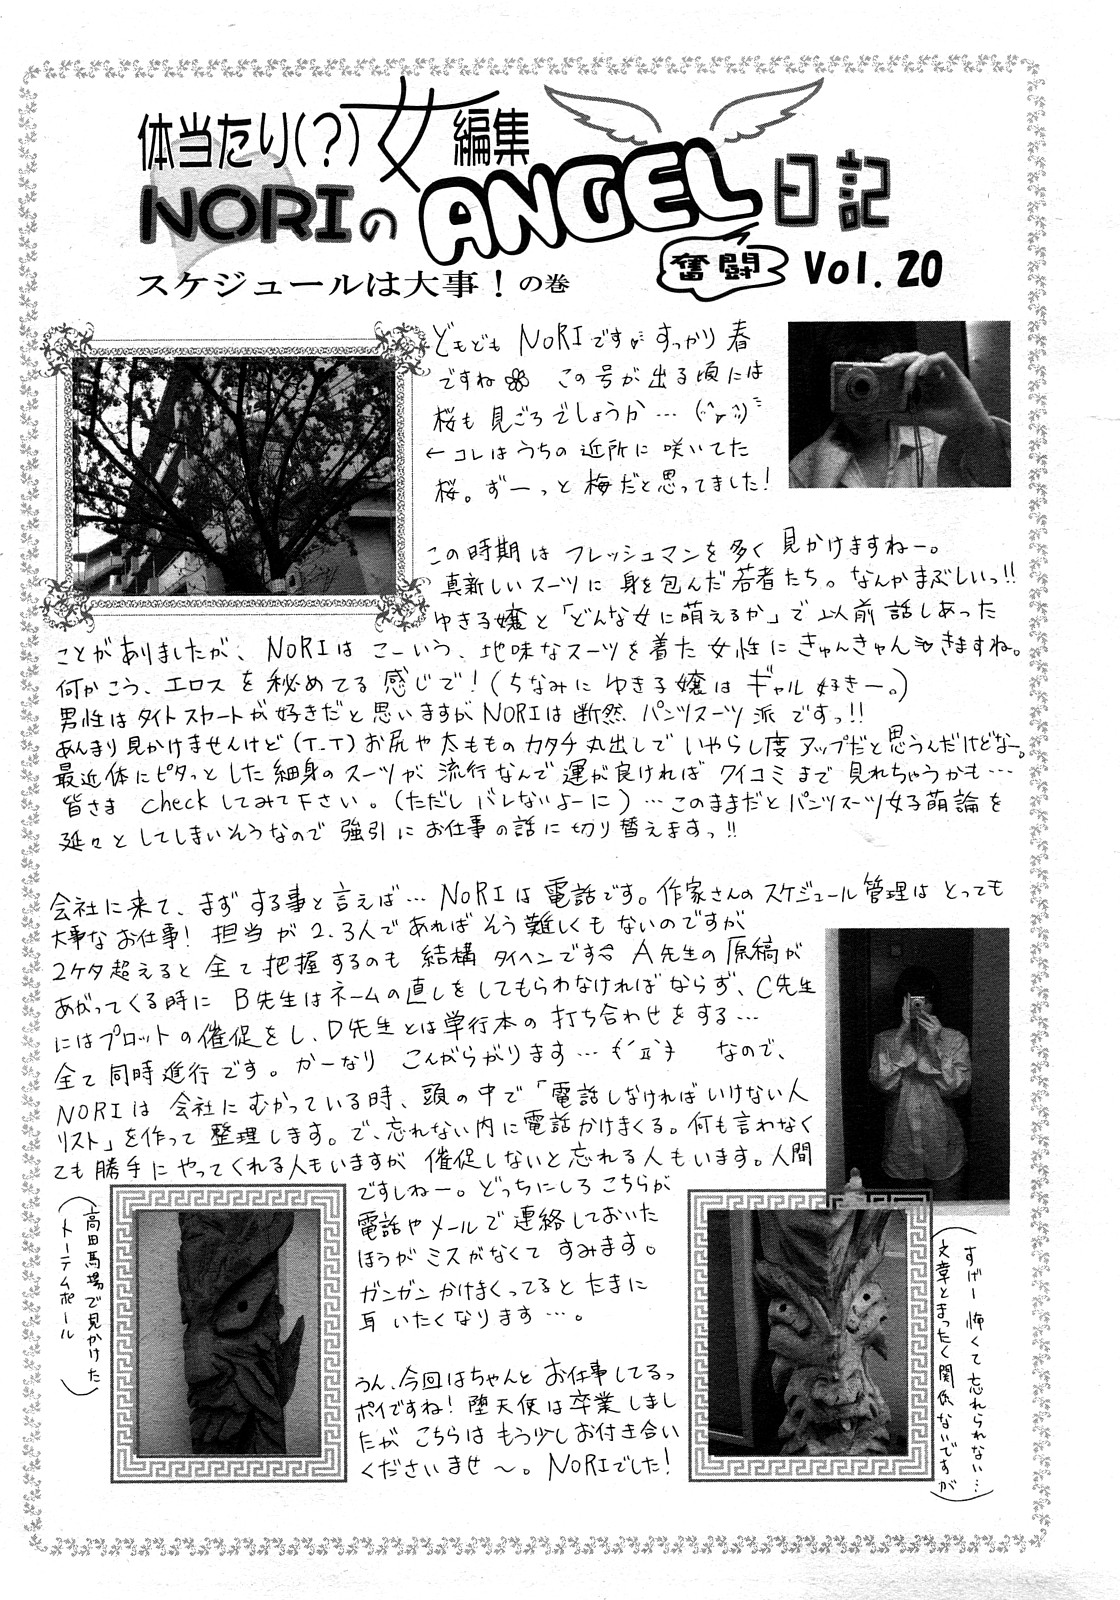 体当たり(?)女編集
NORIのANGEL日記
奮闘 Vol.20
スケジュールは大事!の巻
どもども NORIですがすっかり春
ですね この号が出る頃には
桜も見ごろでしょうか…
←コレはうちの近所に咲いてた
桜。ずーっと梅だと思ってました!
この時期はフレッシュマンを多く見かけますねー。
真新しいスーツに身を包んだ若者たち。なんかまぶしいっ!!
ゆき子嬢と「どんな女に萌えるか」で以前話しあった
ことがありましたが、NORIはこーいう、地味なスーツを着た女性にきゅんきゅん♡きますね。
何かこう、エロスを秘めてる感じで!(ちなみにゆき子嬢はギャル好きー。)
男性はタイトスカートが好きだと思いますがNORIは断然パンツスーツ派ですっ!!
あんまり見かけませんけど(T_T)お尻や太もものカタチ丸出しでいやらし度アップだと思うんだけどなー。
最近体にピタっとした細身のスーツが流行なんで運が良ければクイコミまで見れちゃうかも…
皆さまcheckしてみて下さい。(ただしバレないよーに)…このままだとパンツスーツ女子萌論を
延々としてしまいそうなので強引にお仕事の話に切り替えますっ!!
会社に来て、まずする事と言えば…NORIは電話です。作家さんのスケジュール管理はとっても
大事なお仕事!担当が2.3人であればそう難しくもないのですが
2ケタ超えると全て把握するのも結構タイヘンです A先生の原稿が
あがってくる時にB先生はネームの直しをしてもらわなければならず、C先生
にはプロットの催促をし、D先生とは単行本の打ち合わせをする…
全て同時進行です。かーなりこんがらがります… なので、
NORIは会社にむかっている時、頭の中で「電話しなければいけない人
リスト」を作って整理します。で、忘れない内に電話かけまくる。何も言わなく
ても勝手にやってくれる人もいますが催促しないと忘れる人もいます。人間
ですしねー。どっちにしろこちらが
電話やメールで連絡しておいた
ほうがミスがなくてすみます。
ガンガンかけまくってるとたまに
耳いたくなります…。
うん、今回はちゃんとお仕事してるっ
ポイですね!堕天使は卒業しまし
たがこちらはもう少しお付き合い
くださいませ〜。NORIでした!
(高田馬場で見かけた
トーテムポール)
(すげー怖くて忘れられない…
文章とまったく関係ないですが)